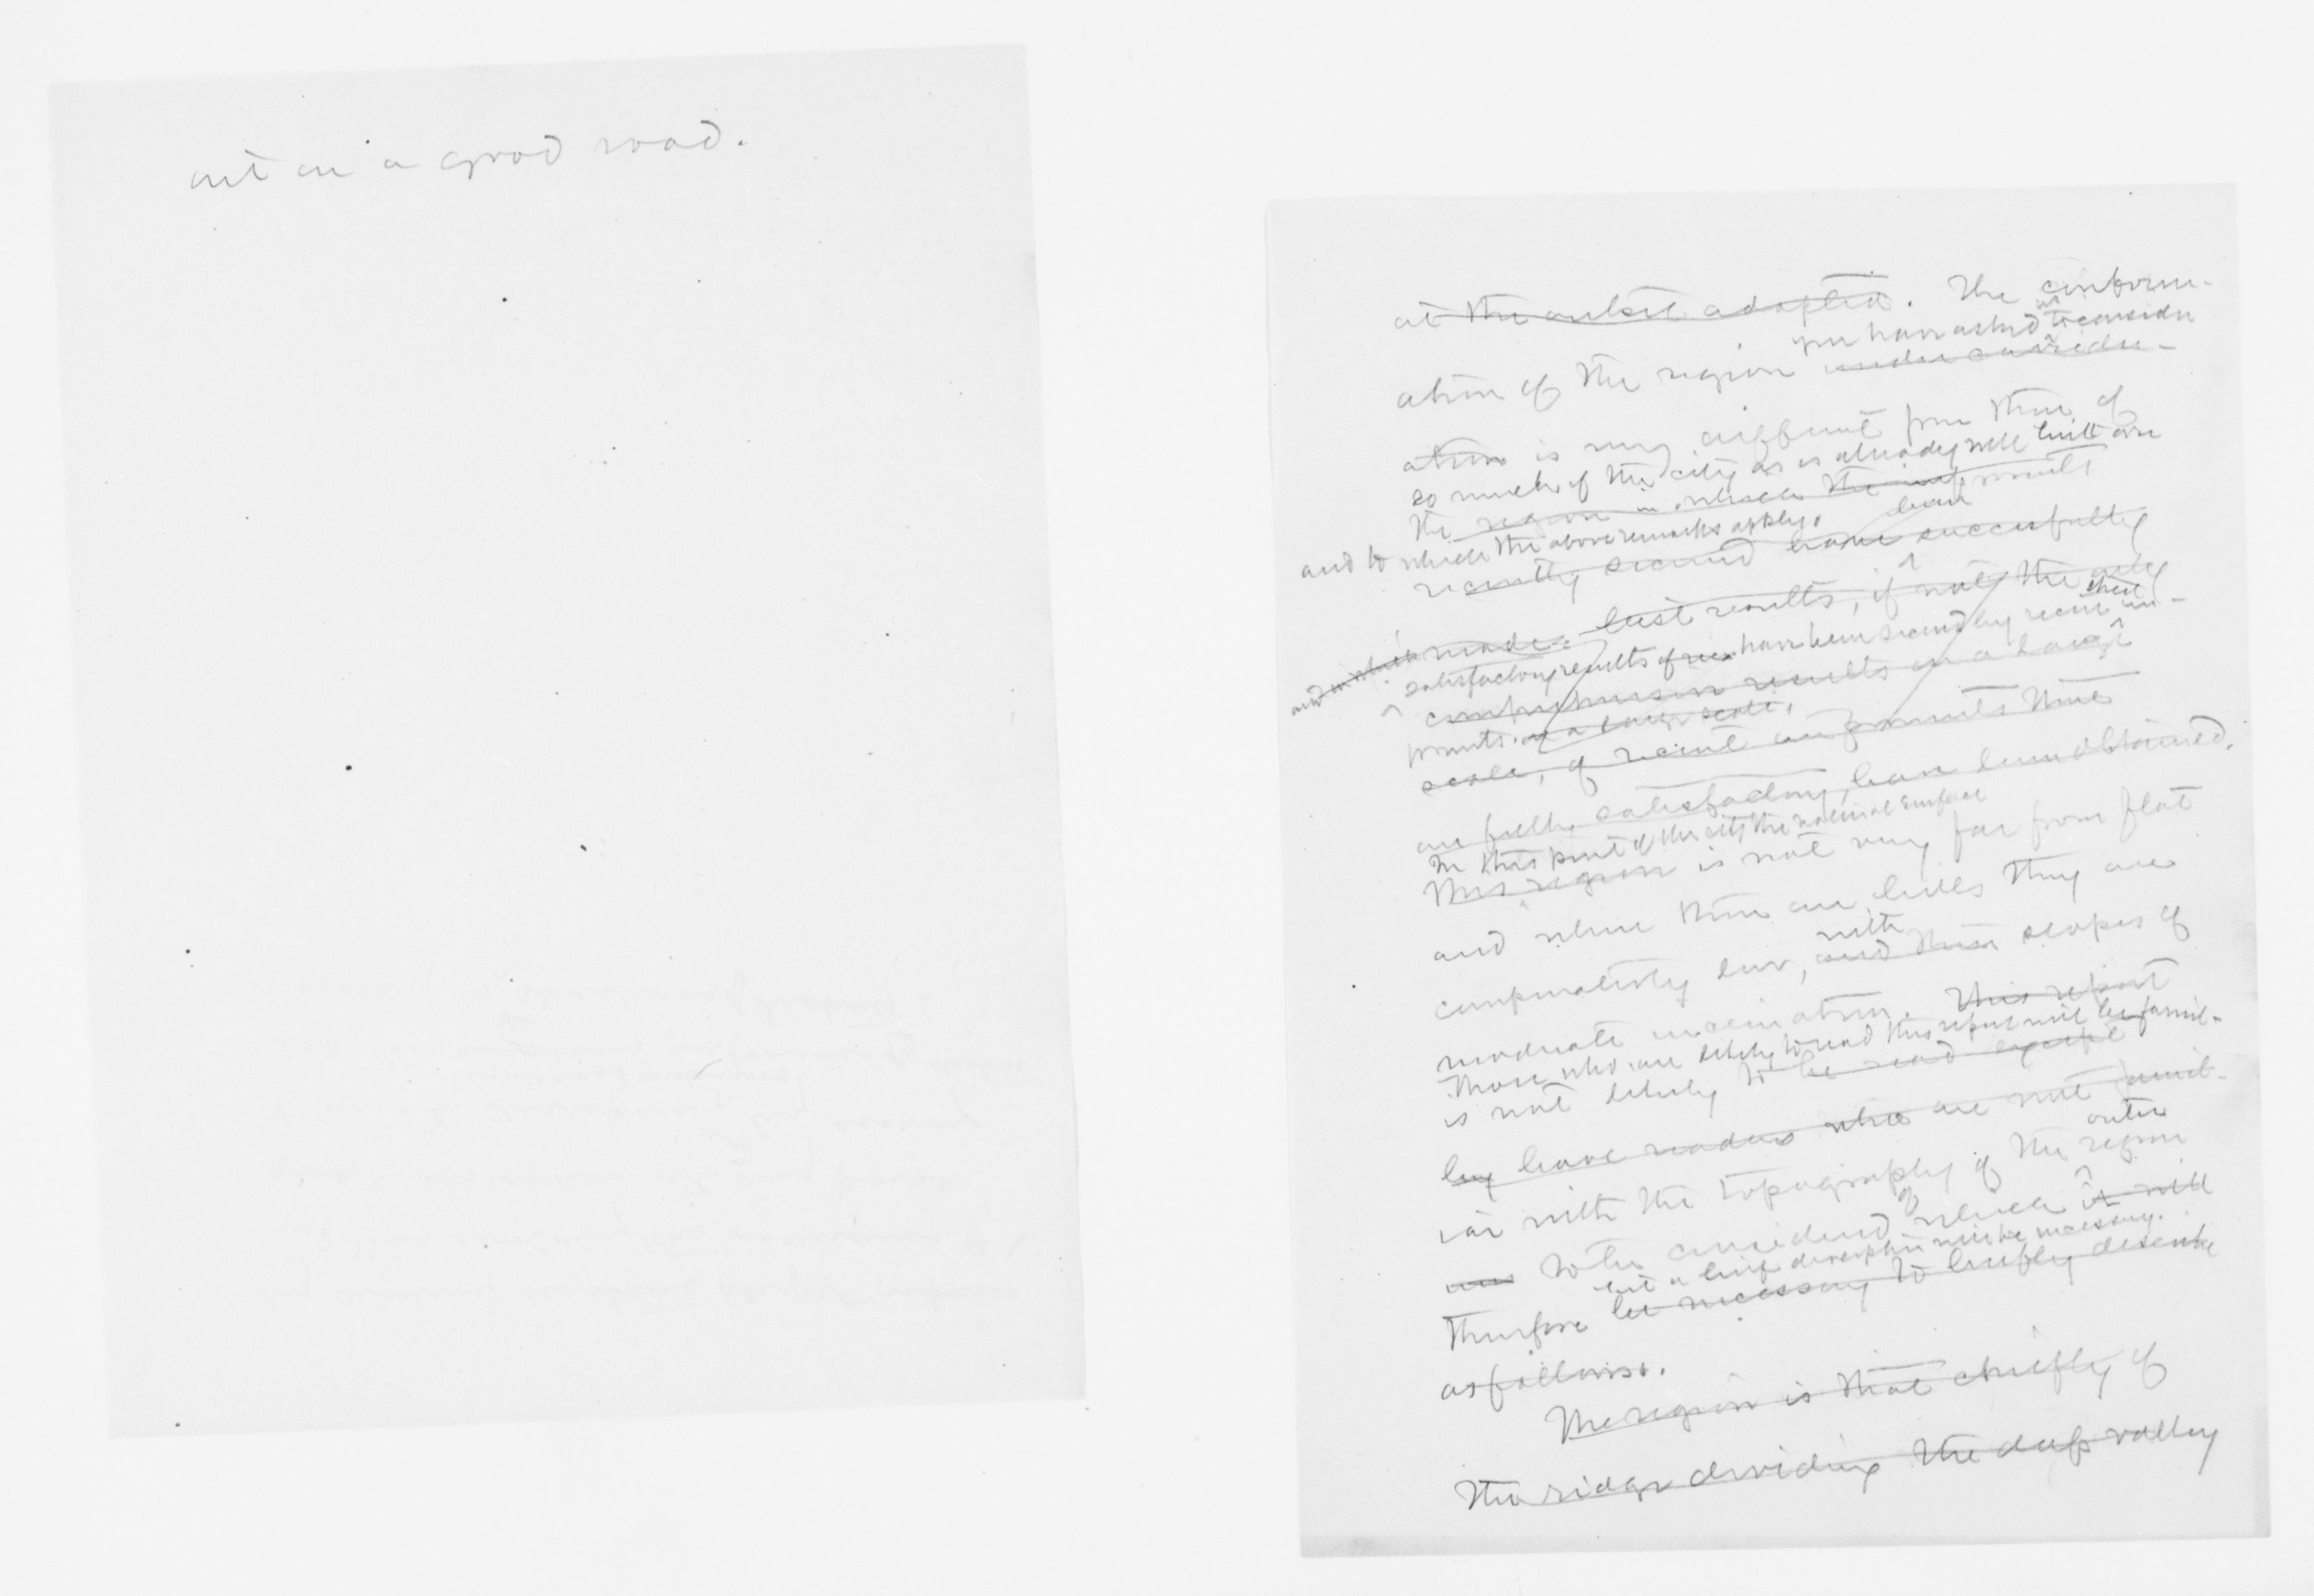 out on a good road.
at the outset adopted. The conform-
you have asked us to consider
ation of the region under consider-
ation is very different from that of
so much of the city as is already well built over
the region in which the improvements
and to which the above remarks apply.
have
recently secured have successfully
and in which made. best results, if not the only
street
satisfactory results of have been secured by recent im-
comprehensive results on a large
provements. on a large scale.
scale, of recent improvements that
are fully satisfactory, have been obtained.
In this part of the city the natural surface
This region is not very far from flat
and where there are hills they are
with
comparatively low, and their slopes of
moderate inclination. This report
Those who are likely to read this report will be famil-
is not likely to be read except
by have readers who are not famil-
outer
iar with the topography of the region
to be considered of which it will
but a brief description will be necessary.
therefore be necessary to briefly describe
as follows.
The region is that chiefly of
the ridge dividing the deep valley